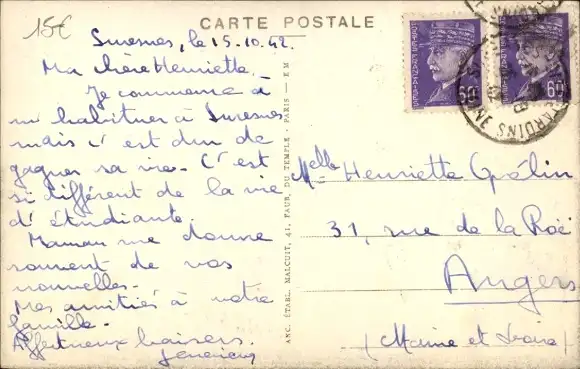 15€
CARTE POSTALE
Suresnes, le 15.10.42.
Ma chère Henriette.
Je commence à
m'habituer à Suresnes
mais c'est dur de
gagner sa vie. C'est
si différent de la vie
d'étudiante.
Maman me donne
souvent de vos
nouvelles.
Mes amitiés à votre
famille.
Affectueux baisers.
ANC. ÉTABL. MALCUIT, 41, FAUB. DU TEMPLE - PARIS — E M
Melle Henriette
31, rue de la Roë
Angers
(Maine et Loire)
60
60